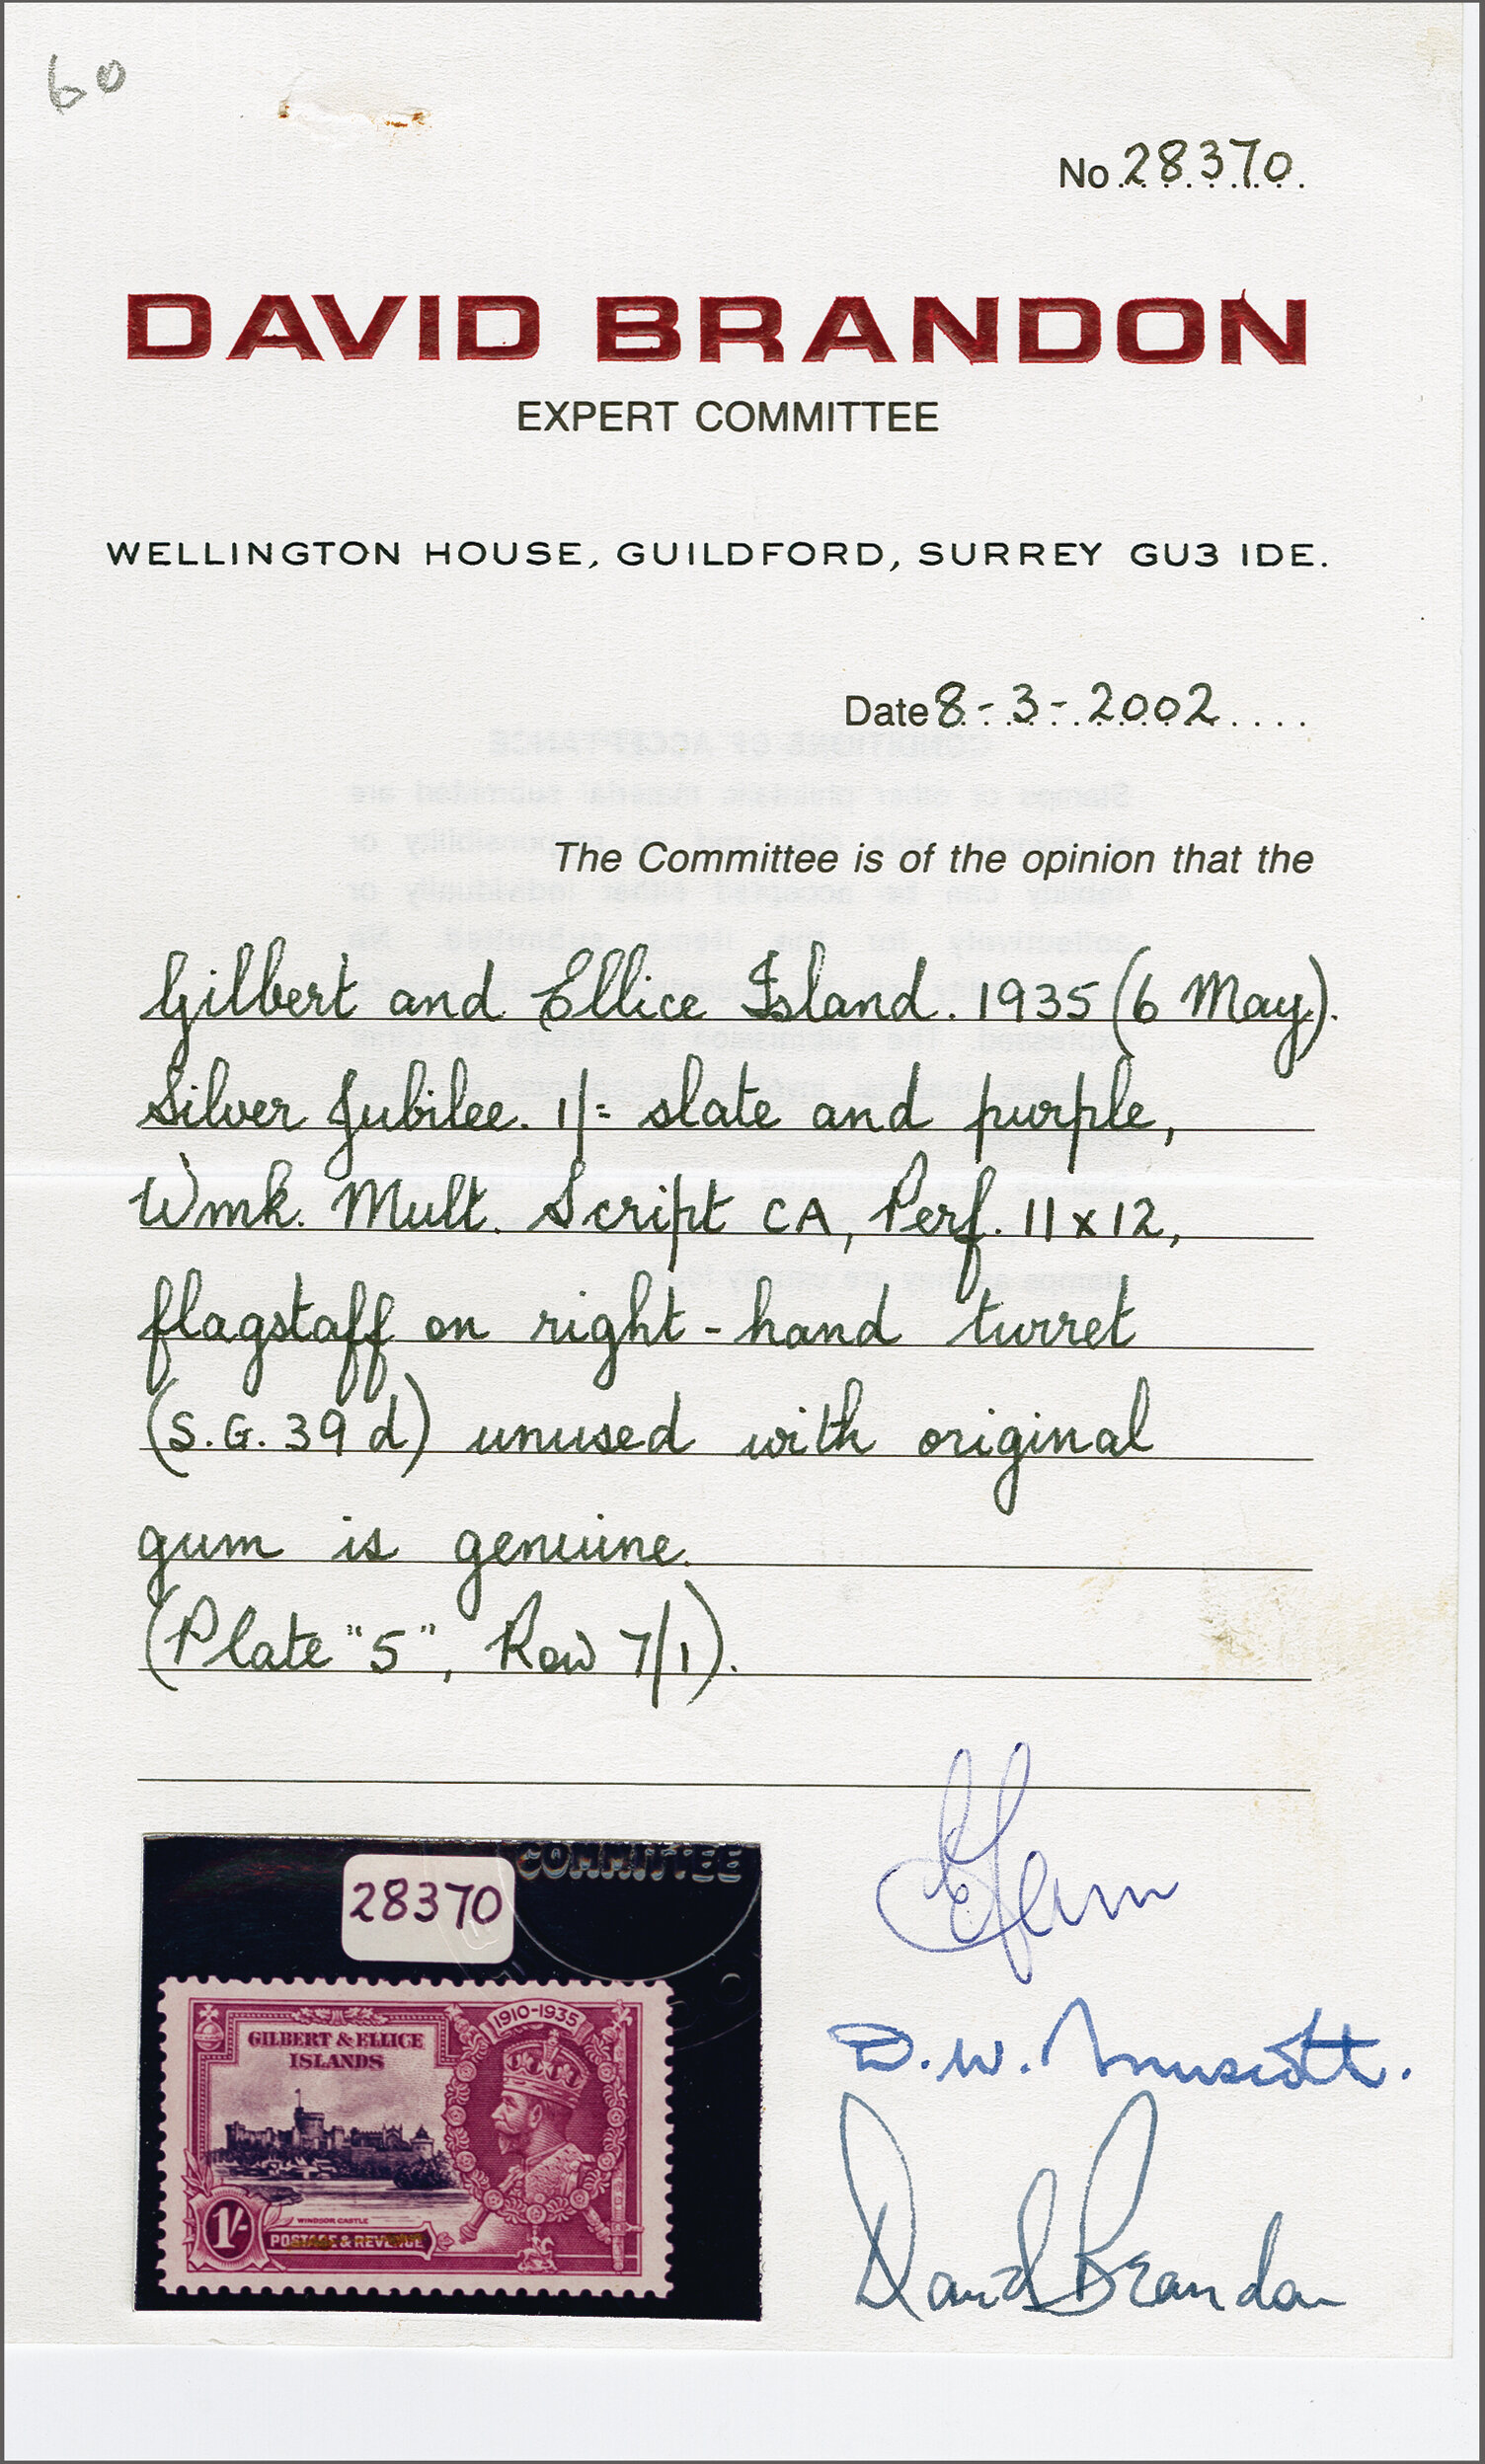 60
No 28370
DAVID BRANDON
EXPERT COMMITTEE
WELLINGTON HOUSE, GUILDFORD, SURREY GU3 1DE.
Date 8-3-2002
The Committee is of the opinion that the
Gilbert and Ellice Island. 1935 (6 May).
Silver Jubilee. 1/= slate and purple,
Wmk. Mult. Script CA, Perf. 11 x 12,
flagstaff on right-hand turret
(S.G. 39d) unused with original
gum is genuine.
(Plate "5", Row 7/1).
COMMITTEE
28370
1910-1935
GILBERT & ELLICE
ISLANDS
WINDSOR CASTLE
1/-
POSTAGE & REVENUE
D.W. Muscott.
David Brandon